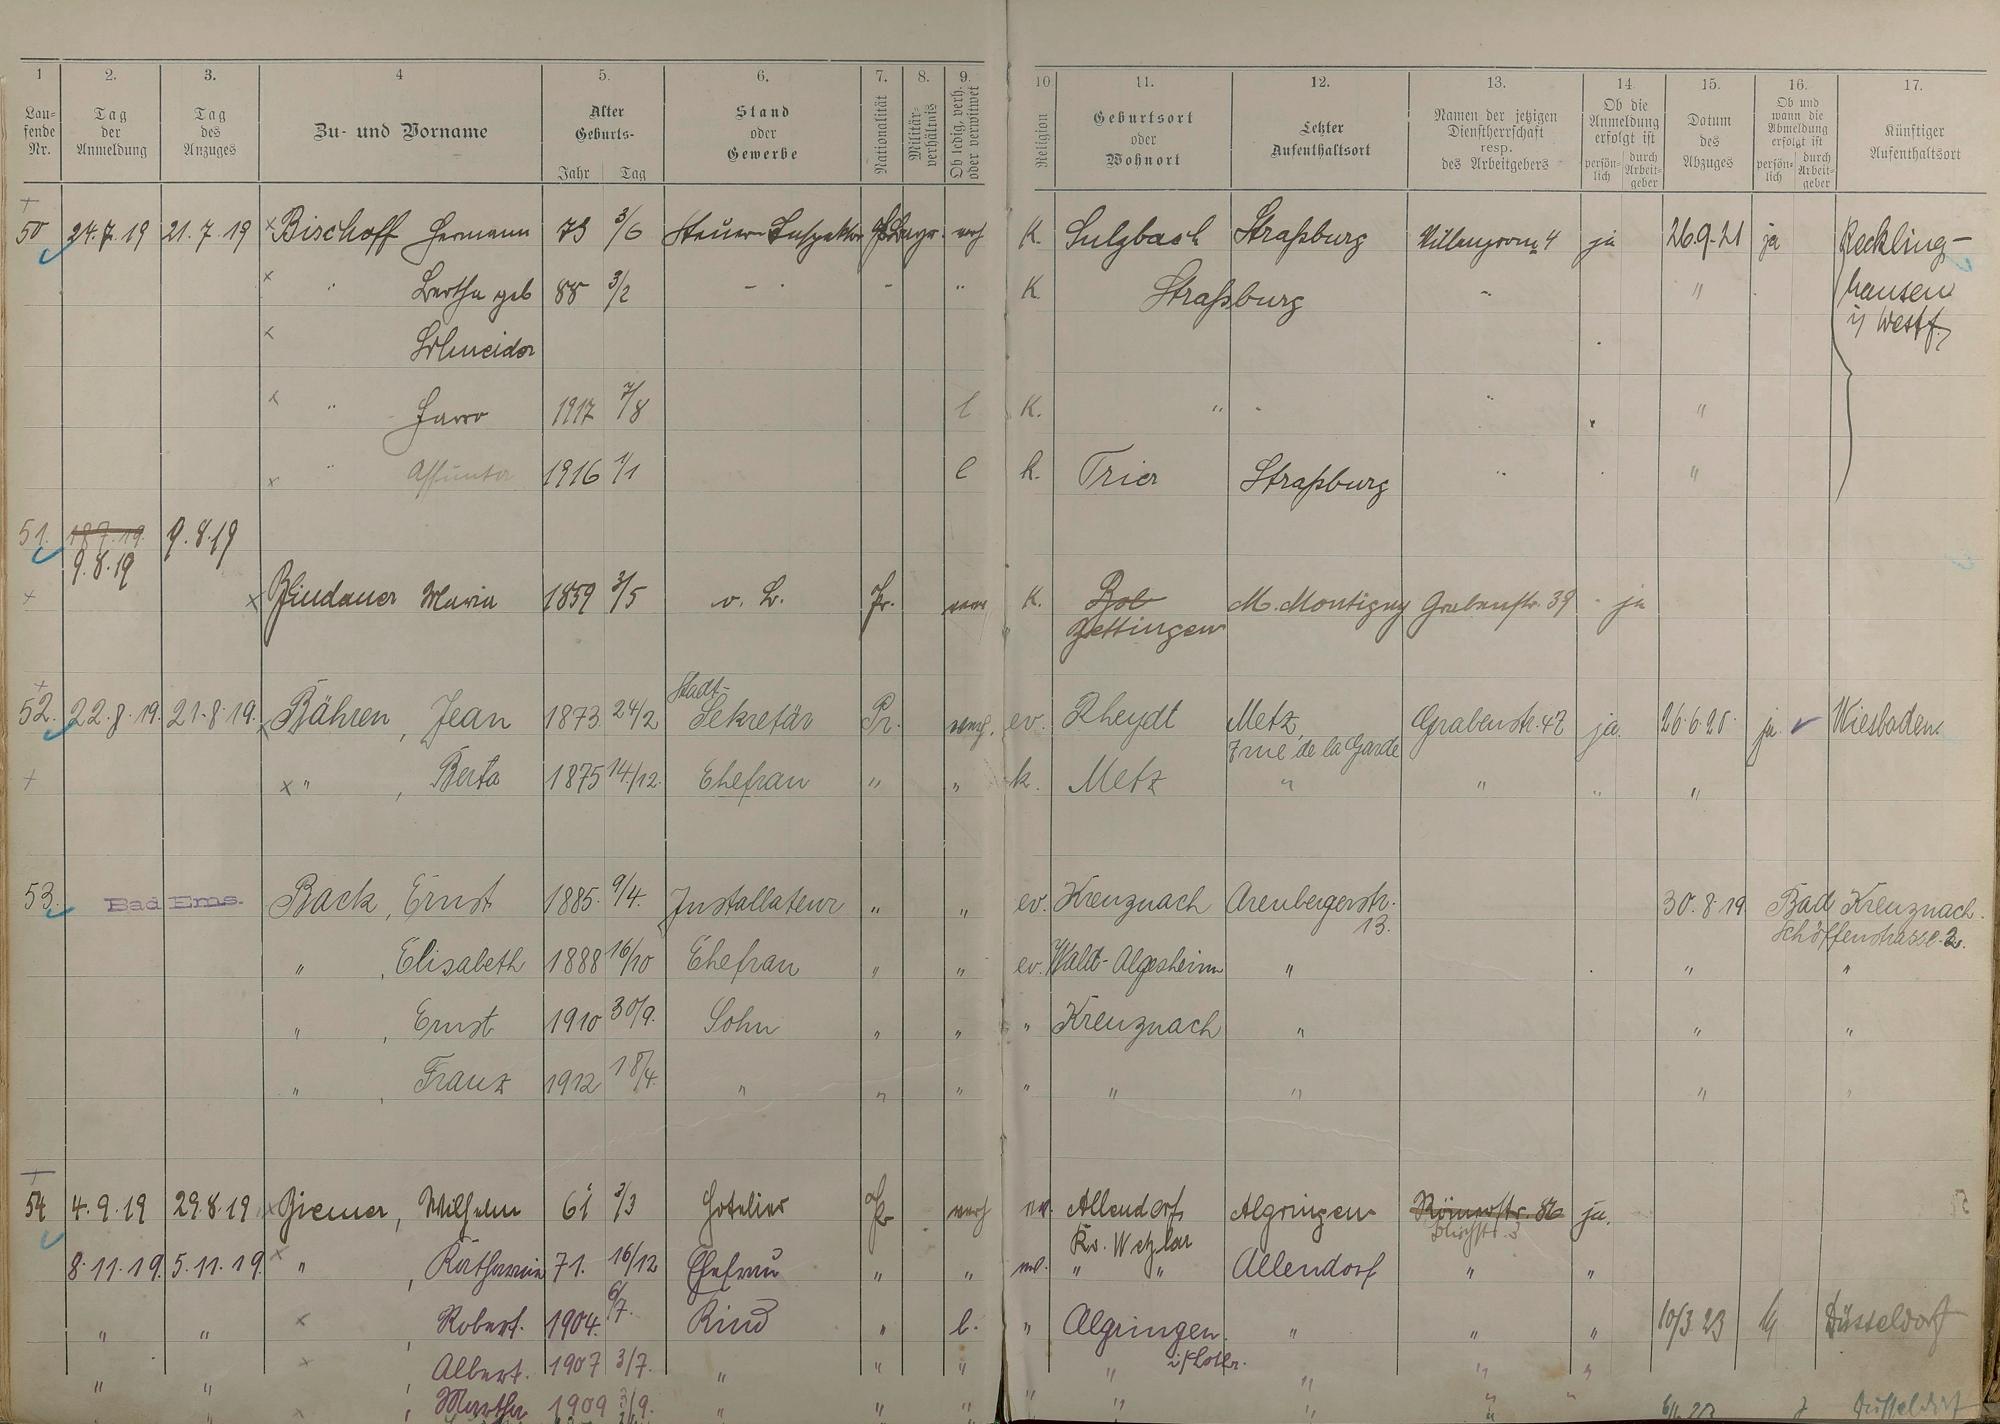 1 2. 3. 4 5. 6. 7. 8. 9. 10 11. 12. 13. 14. 15. 16. 17.
Lau-fende Nr.
Tag der Anmeldung
Tag des Anzuges
Zu- und Vorname
Alter Geburts- Jahr Tag
Stand oder Gewerbe
Nationalität
Militär-verhältnis
Ob ledig, verh. oder verwitwet
Religion
Geburtsort oder Wohnort
Letzter Aufenthaltsort
Namen der jetzigen Dienstherrschaft resp. des Arbeitgebers
Ob die Anmeldung erfolgt ist persön-lich durch Arbeit-geber
Datum des Abzuges
Ob und wann die Abmeldung erfolgt ist persön-lich durch Arbeit-geber
Künftiger Aufenthaltsort
50 24.7.19 21.7.19 Bischoff Hermann 3/6 Steuer-Inspektor verh K. Sulzbach Straßburg ja 26.9.21 ja Reckling-
" Bertha geb 88 3/2 - - " K. Straßburg " hausen
Schneider i/ Westf.
" Harro 1917 7/8 l K. " "
" Assunta 1916 1/1 l k. Trier Straßburg "
51. 18.7.19. 9.8.19
9.8.19
Lindauer Maria 1859 3/5 o. B. Pr. K. M. Montigny Grabenstr. 39 ja
Zettingen
Stadt-
52. 22.8.19. 21.8.19. Bähren, Jean 1873 24/2 Sekretär Pr. verh. ev. Rheydt Metz Grabenstr. 42 ja. ja Wiesbaden
7 rue de la Garde
" , Berta 1875 14/12. Ehefrau " " k. Metz " " " "
53. Bad Ems. Back, Ernst 1885. 9/4. Installateur " " ev. Kreuznach Arenbergerstr. 30.8.19 Bad Kreuznach.
13. Schöffenstrasse 2.
" , Elisabeth 1888 16/10 Ehefrau " " ev. Wald-Algesheim " " "
" , Ernst 1910 30/9. Sohn " " " Kreuznach " " "
" , Franz 1912 18/4. " " " " " " " "
54 4.9.19 29.8.19 Giemer, Wilhelm 61 3/3 Hotelier Pr verh ev. Allendorf Algringen Römerstr. 86 ja.
Kr. Wetzlar
8.11.19. 5.11.19. " , Katharina 71. 16/12 Ehefrau " " " " Allendorf " "
" " , Robert. 1904. 6/7. Kind " l. " Algringen. " " " 10/3 23 Düsseldorf
i/Lothr.
" " , Albert. 1907 3/7. " " " " " " "
, Martha 1909 3/9. " " " " " " " " Düsseldorf